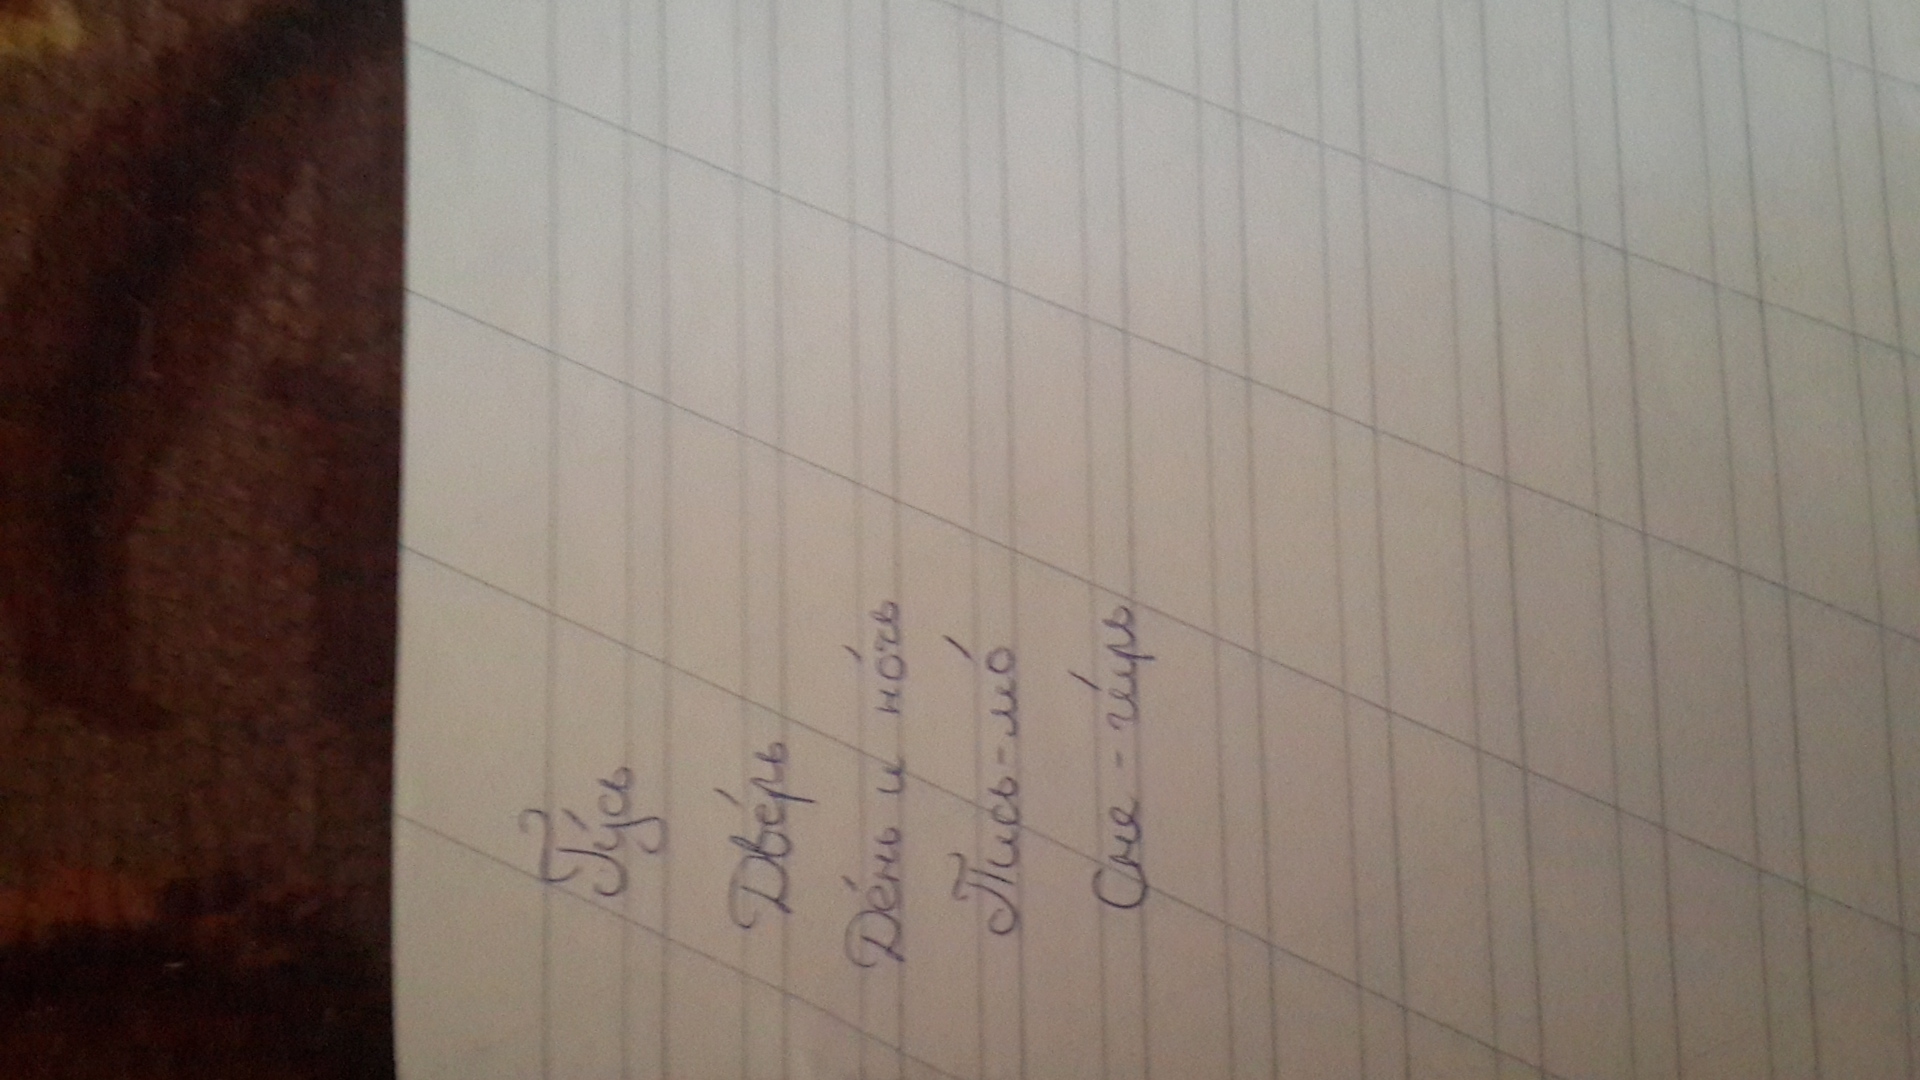 Гу́сь
Две́рь
Де́нь и но́чь
Пись-мо́
Сне-ги́рь